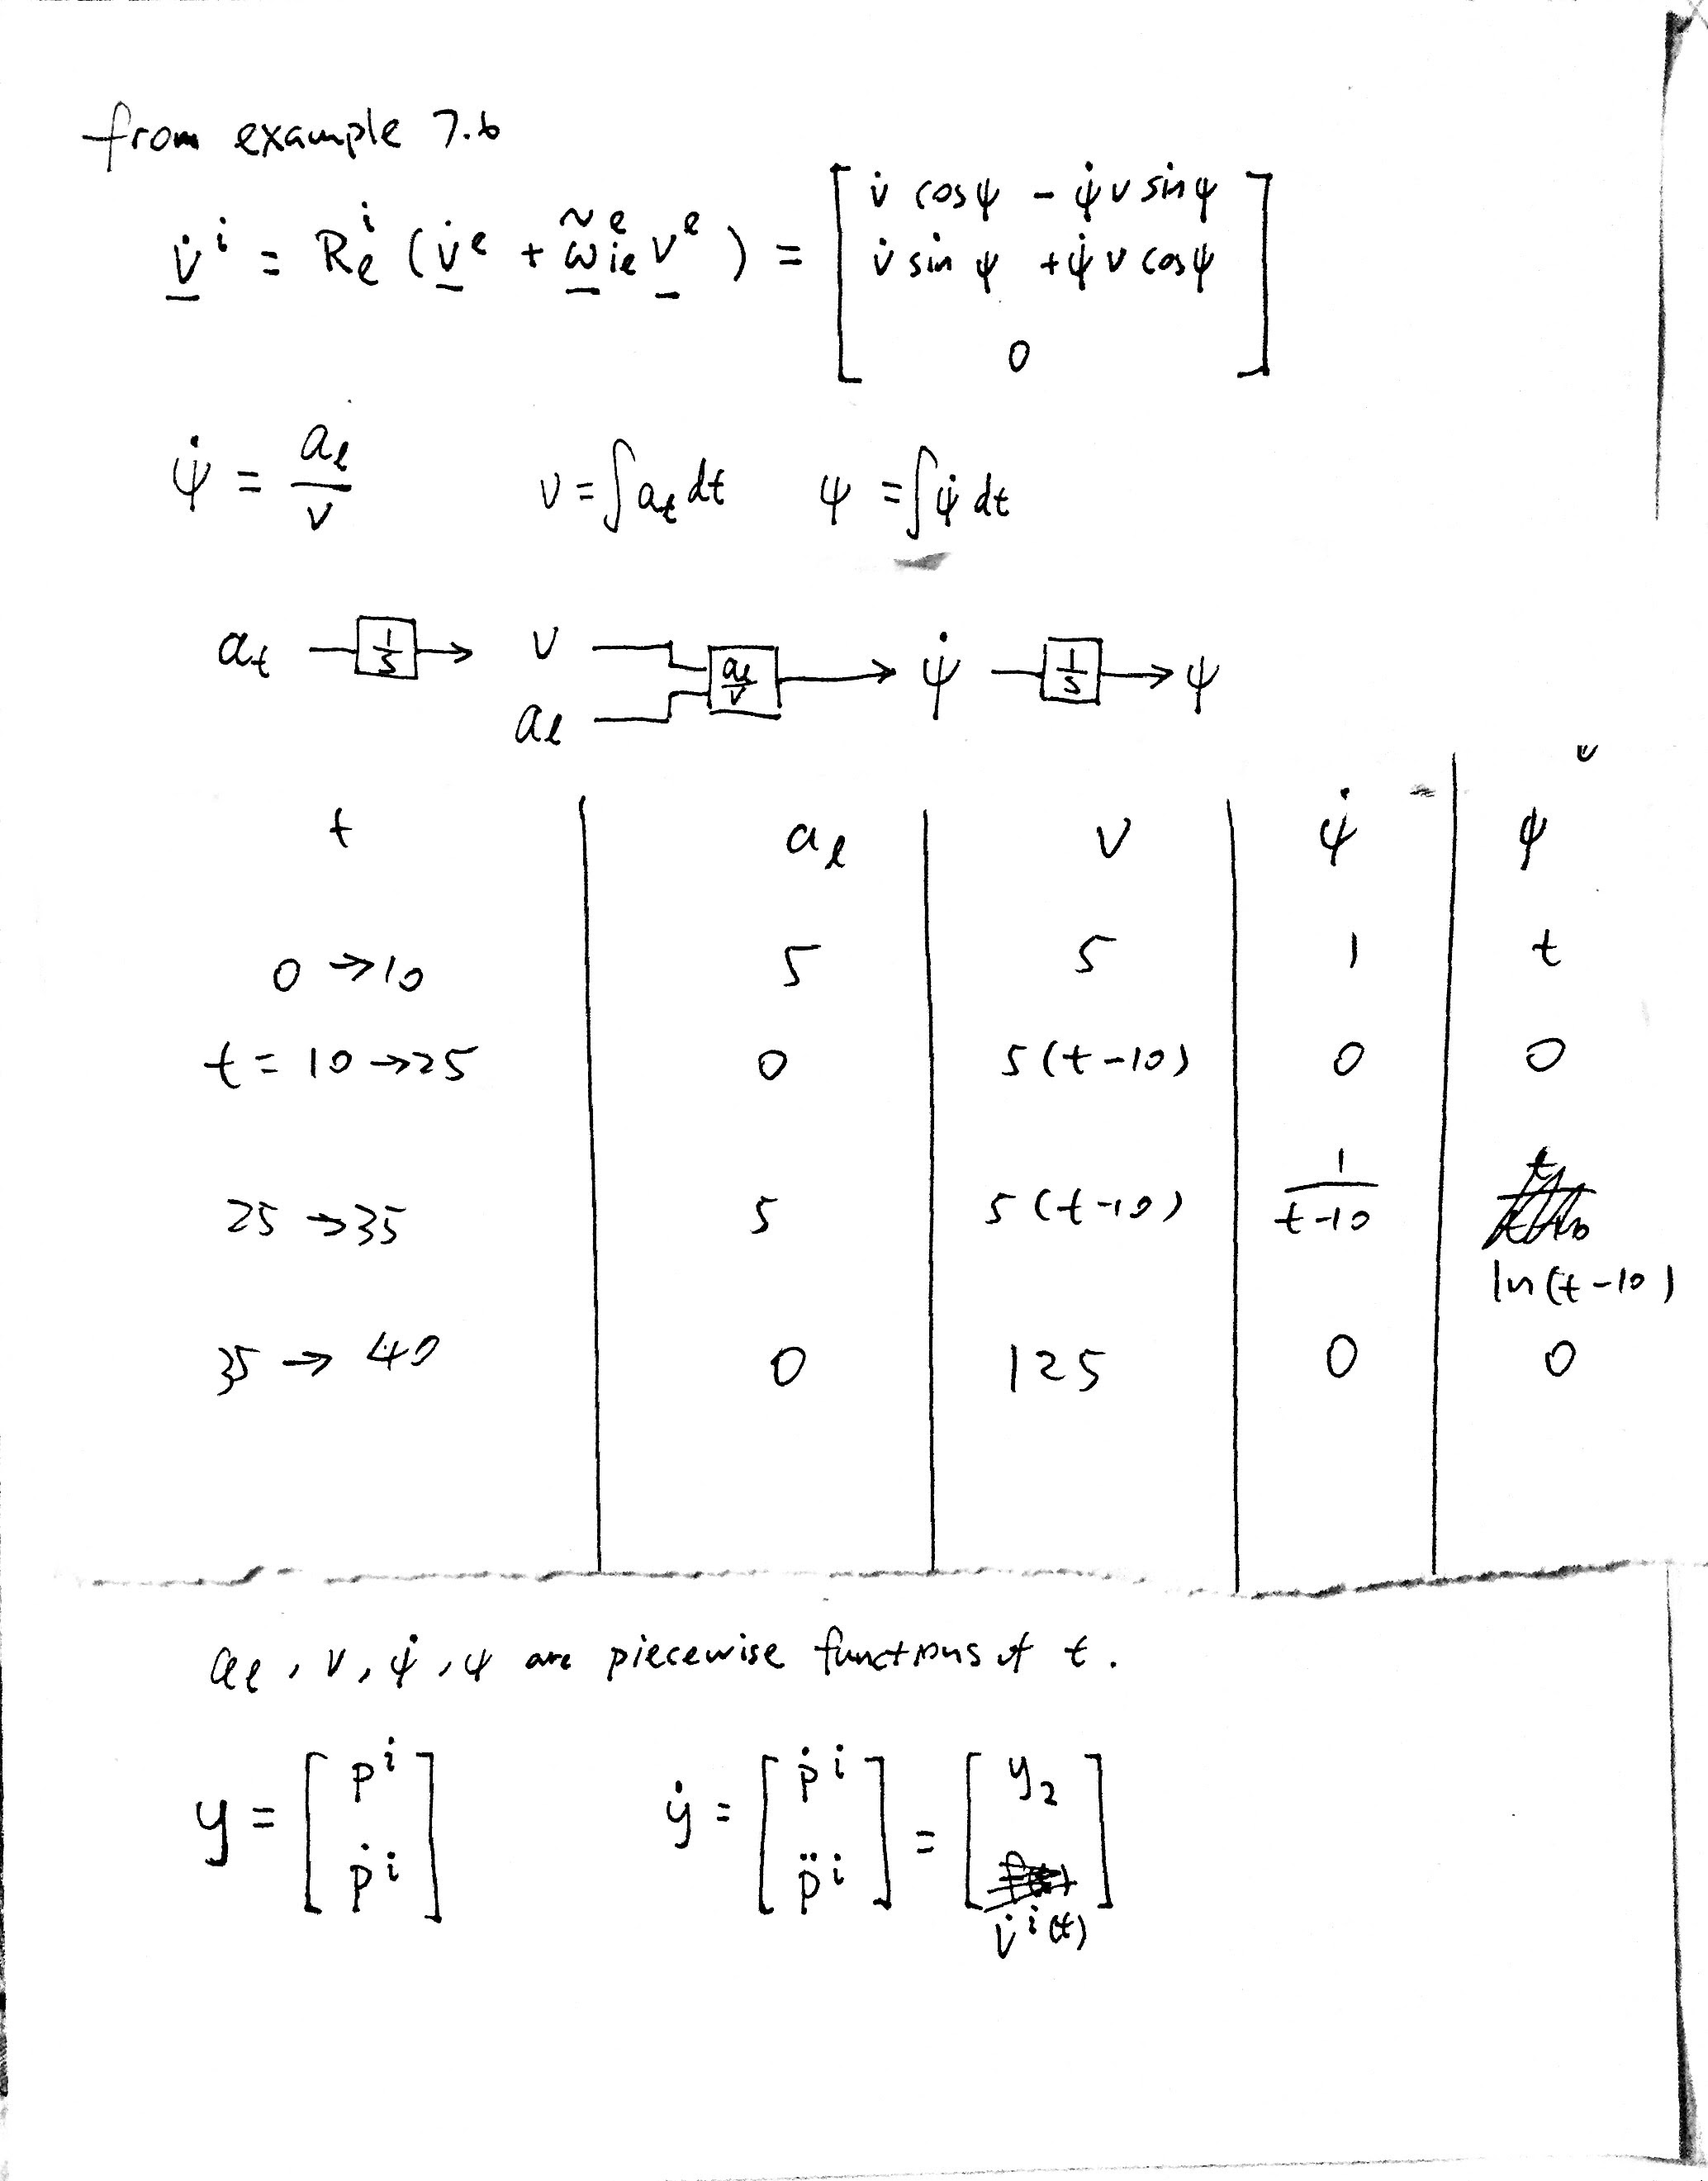 from example 7.6
v̇ⁱ = Rₑⁱ (v̇ᵉ + ω̃ᵢₑᵉ vᵉ) = [ v̇ cosψ - ψ̇ v sinψ
v̇ sin ψ + ψ̇ v cosψ
0 ]
ψ̇ = aₗ / v v = ∫aₜ dt ψ = ∫ψ̇ dt
aₜ → 1/s → v aₗ/v → ψ̇ → 1/s → ψ
aₗ
t aₗ v ψ̇ ψ
0 → 10 5 5 1 t
t = 10 → 25 0 5(t-10) 0 0
25 → 35 5 5(t-10) 1/(t-10)
ln(t-10)
35 → 40 0 125 0 0
aₗ, v, ψ̇, ψ are piecewise functions of t.
y = [ pⁱ ṗⁱ ] ẏ = [ ṗⁱ p̈ⁱ ] = [ y₂ v̇ⁱ(t) ]